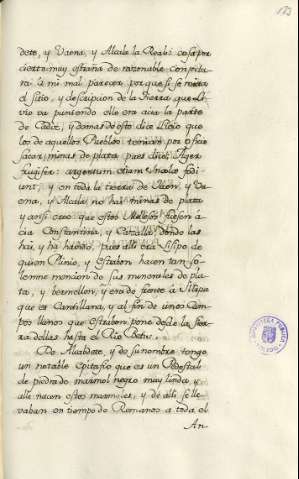 123
dete, y Vaena, y Alcala la Real: cosa por
cierto muy estraña de razonable conjetu
ra à mi mal parecer porque si se mira
el sitio, y descripcion de la tierra que Li-
vio va puniendo ello era acia la parte
de Cadiz, y demas de esto dice Livio que
los de aquellos Pueblos tenian por oficio
sacar minas de plata pues dice: Ager
frugifer: argentum etiam Incolæ fodi
unt; y en toda la tierra de Jaen, y Va
ena, y Alcalá no hai minas de plata
y anssi creo que estos fueron à
cia Constantina, y Cazalla, donde las
hai, y ha havido, pues alli era Lisipo, de
quien Plinio, y Estrabon hacen tan so-
lemne mencion de sus minerales de pla
ta, y bermellon, y era de frente à Ilipa
que es Cantillana, y al fin de unos Cam
pos llanos que Estrabon pone desde la sier
ra dellas hasta el Rio Betis.
De Alcaudete, y de su nombre tengo
un notable Epitafio que es un Pedestal
de piedra de marmol negro muy linda, y
alli nacen estos marmoles, y de alli se lle
vaban en tiempo de Romanos a toda el
An-